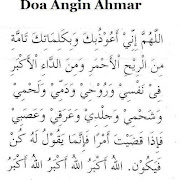 Doa Angin Ahmar
اَللّٰهُمَّ إِنِّيْ أَعُوْذُبِكَ وَبِكَلِمَاتِكَ تَامَّةِ
مِنَ الرِّيْحِ الْأَحْمَرِ وَمِنَ الدَّاءِ الْأَكْبَرِ
فِيْ نَفْسِيْ وَرُوْحِيْ وَدَمِّيْ وَلَحْمِيْ
وَشَحْمِيْ وَجِلْدِيْ وَعَرَقِيْ وَعَصَبِيْ
فَإِذَا قَضَيْتَ أَمْرًا فَإِنَّمَا يَقُوْلُ لَهُ كُنْ
فَيَكُوْنُ. اَللهُ أَكْبَرُ اَللهُ أَكْبَرُ اَللهُ أَكْبَرُ